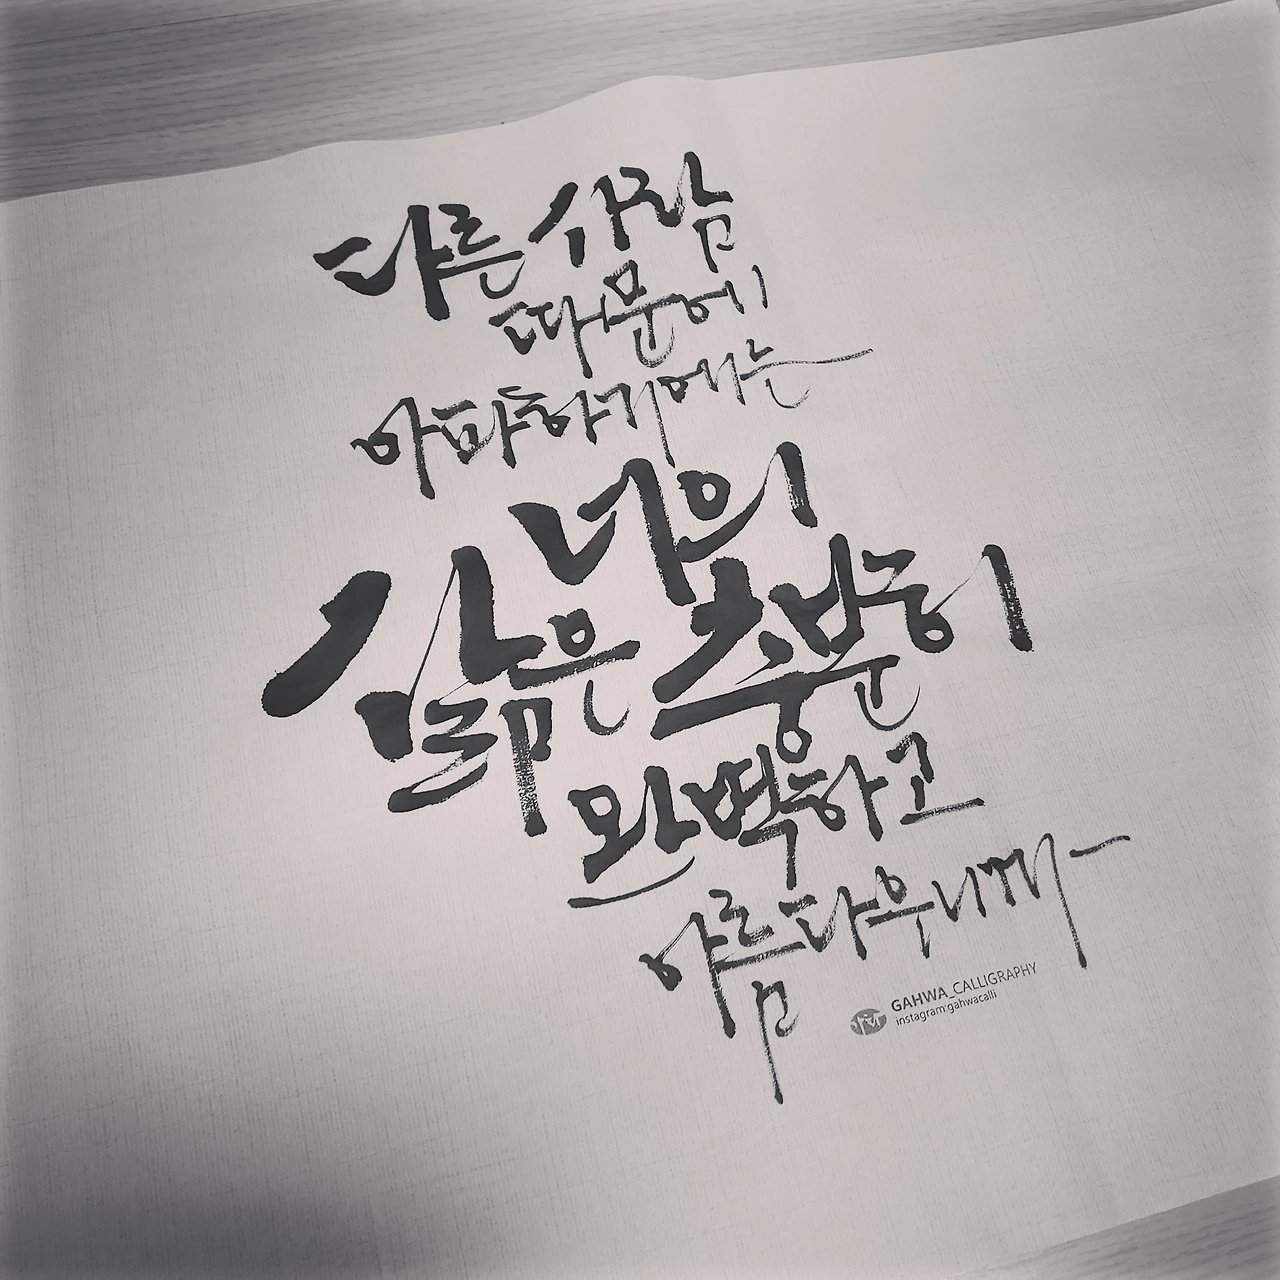 다른 사람
때문에
아파하기에는
너의
삶은 충분히
완벽하고
아름다우니까
GAHWA_CALLIGRAPHY
instagram:gahwacalli